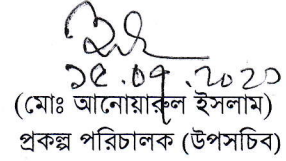 ১৫.০৭.২০২০
(মোঃ আনোয়ারুল ইসলাম)
প্রকল্প পরিচালক (উপসচিব)